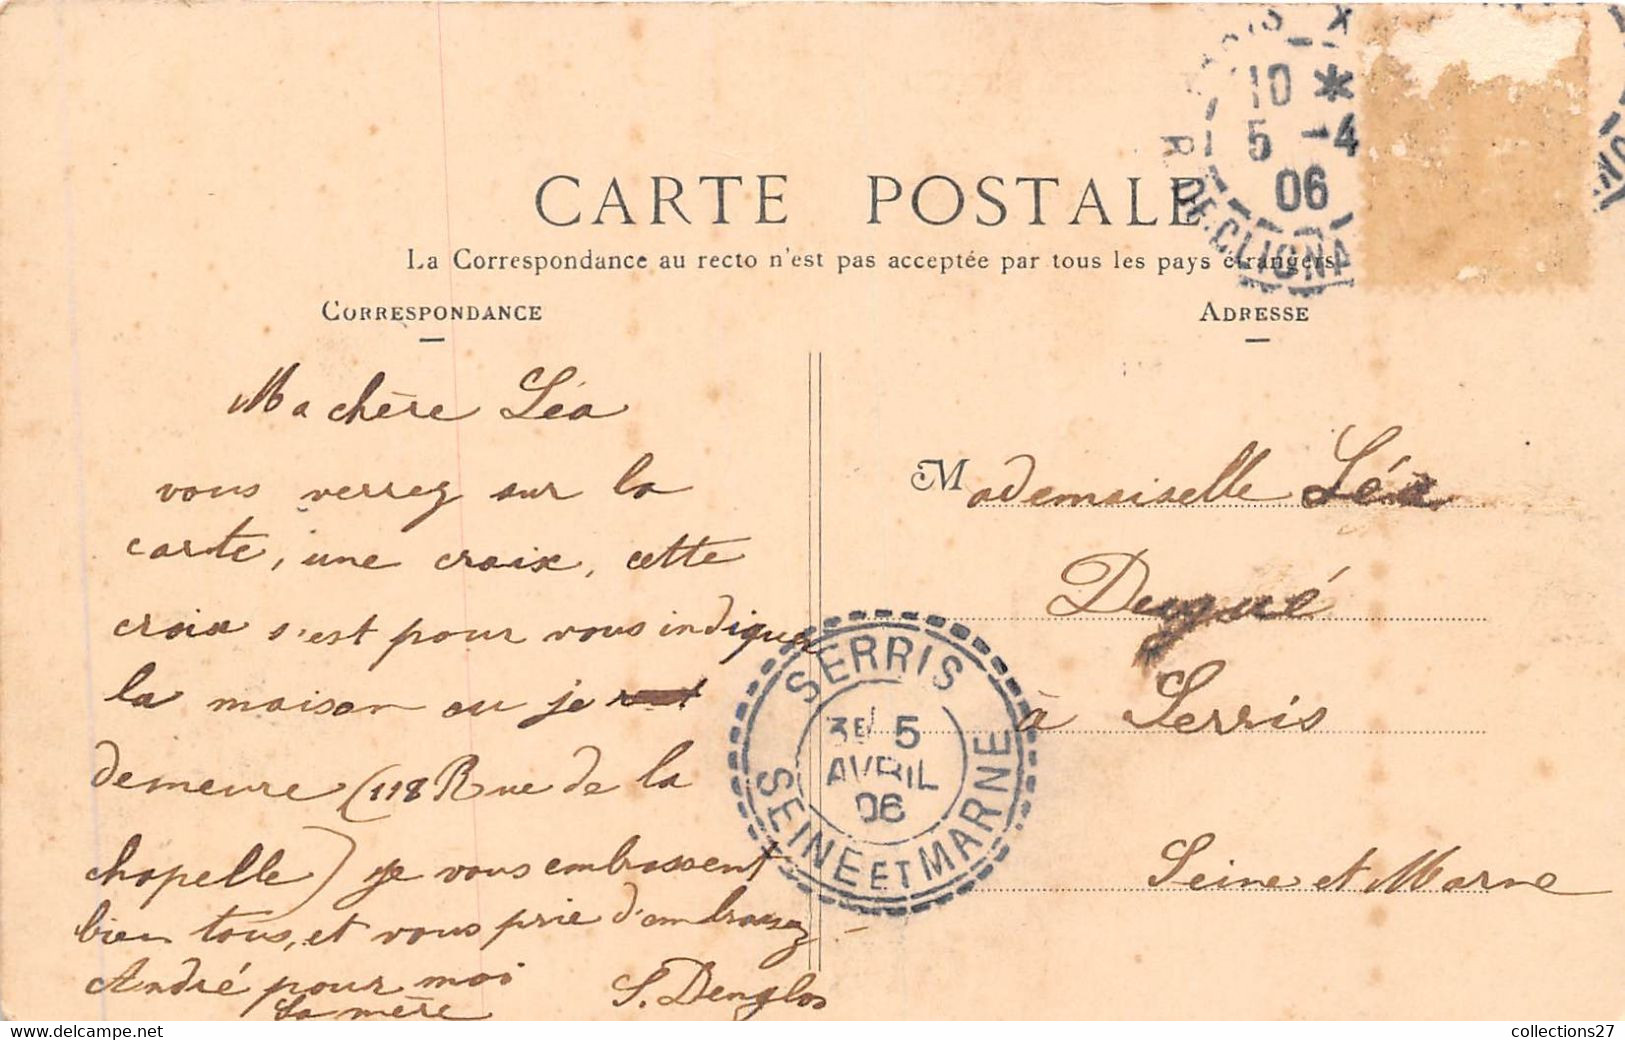 10 *
5 -4
06
R. DE CLIGNA
CARTE POSTALE
La Correspondance au recto n'est pas acceptée par tous les pays étrangers
CORRESPONDANCE
Ma chère Léa
vous verrez sur la
carte, une croix, cette
croix s'est pour vous indiquer
la maison ou je
demeure (118 Rue de la
chapelle) je vous embrassent
bien tous, et vous prie d'embrassez
André pour moi
Sa mère
S. Denglos
ADRESSE
Mademoiselle Léa
Dugué
à Serris
Seine et Marne
SERRIS
3E/ 5
AVRIL
06
SEINE ET MARNE
collections27